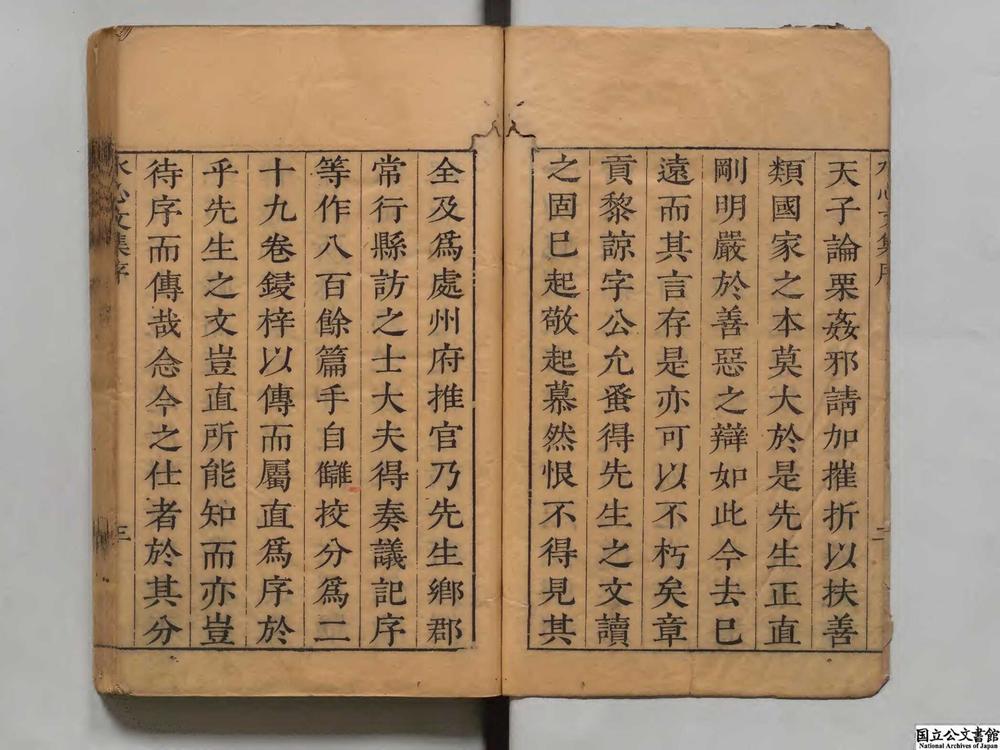 天子論栗姦邪請加摧折以扶善
類國家之本莫大於是先生正直
剛明嚴於善惡之辯如此今去巳
遠而其言存是亦可以不朽矣章
貢黎諒字公允蚤得先生之文讀
之固巳起敬起慕然恨不得見其
全及爲處州府推官乃先生鄉郡
常行縣訪之士大夫得奏議記序
等作八百餘篇手自讎挍分爲二
十九卷鋟梓以傳而屬直爲序於
乎先生之文豈直所能知而亦豈
待序而傳哉念今之仕者於其分
水心文集序
二
水心文集序
三
国立公文書館
National Archives of Japan